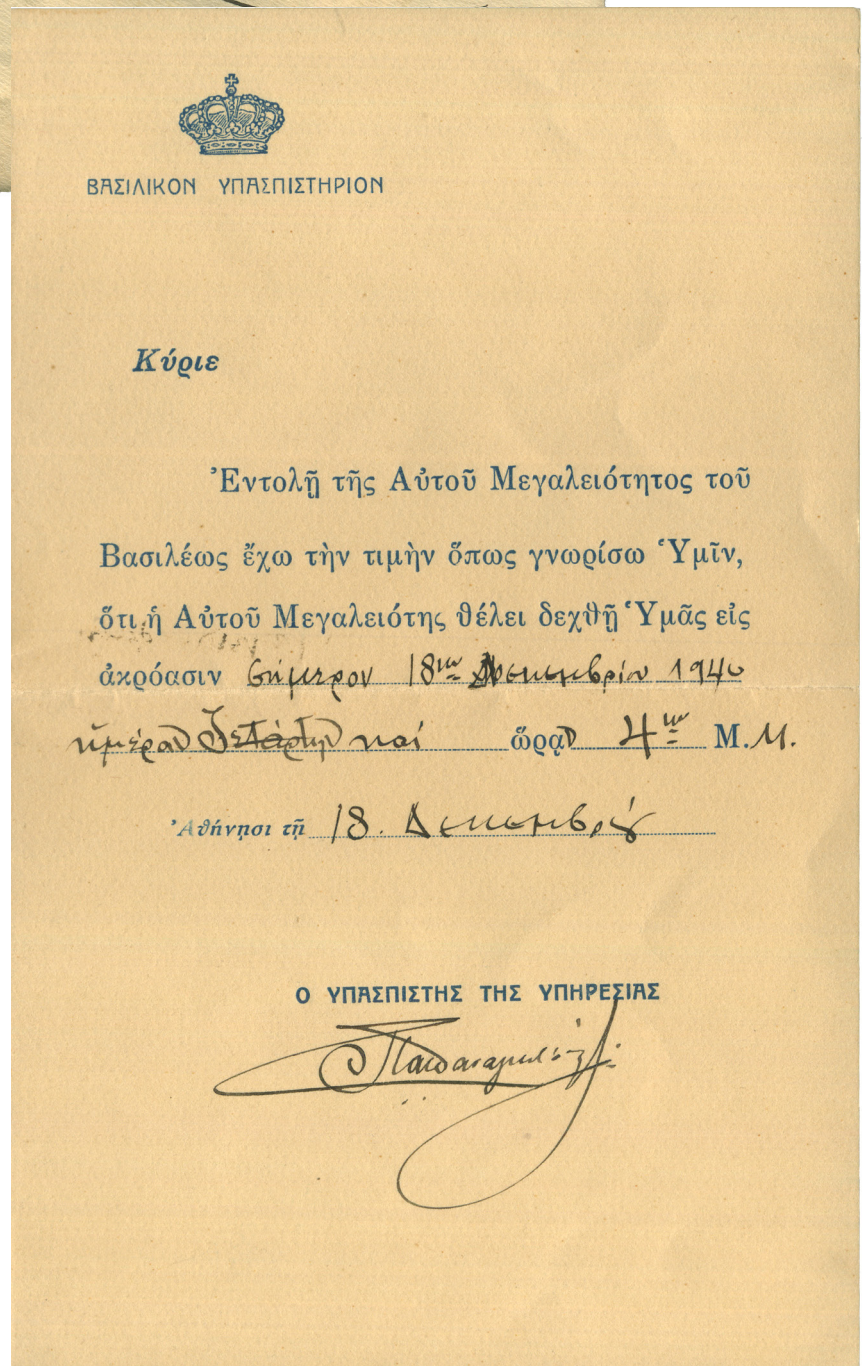 ΒΑΣΙΛΙΚΟΝ ΥΠΑΣΠΙΣΤΗΡΙΟΝ
Κύριε
Ἐντολῇ τῆς Αὐτοῦ Μεγαλειότητος τοῦ
Βασιλέως ἔχω τὴν τιμὴν ὅπως γνωρίσω Ὑμῖν,
ὅτι ἡ Αὐτοῦ Μεγαλειότης θέλει δεχθῇ Ὑμᾶς εἰς
ἀκρόασιν σήμερον 18ην Δεκεμβρίου 1940
ἡμέραν Τετάρτην καὶ ὥραν 4ην Μ.Μ.
Ἀθήνησι τῇ 18 Δεκεμβρίου
Ο ΥΠΑΣΠΙΣΤΗΣ ΤΗΣ ΥΠΗΡΕΣΙΑΣ